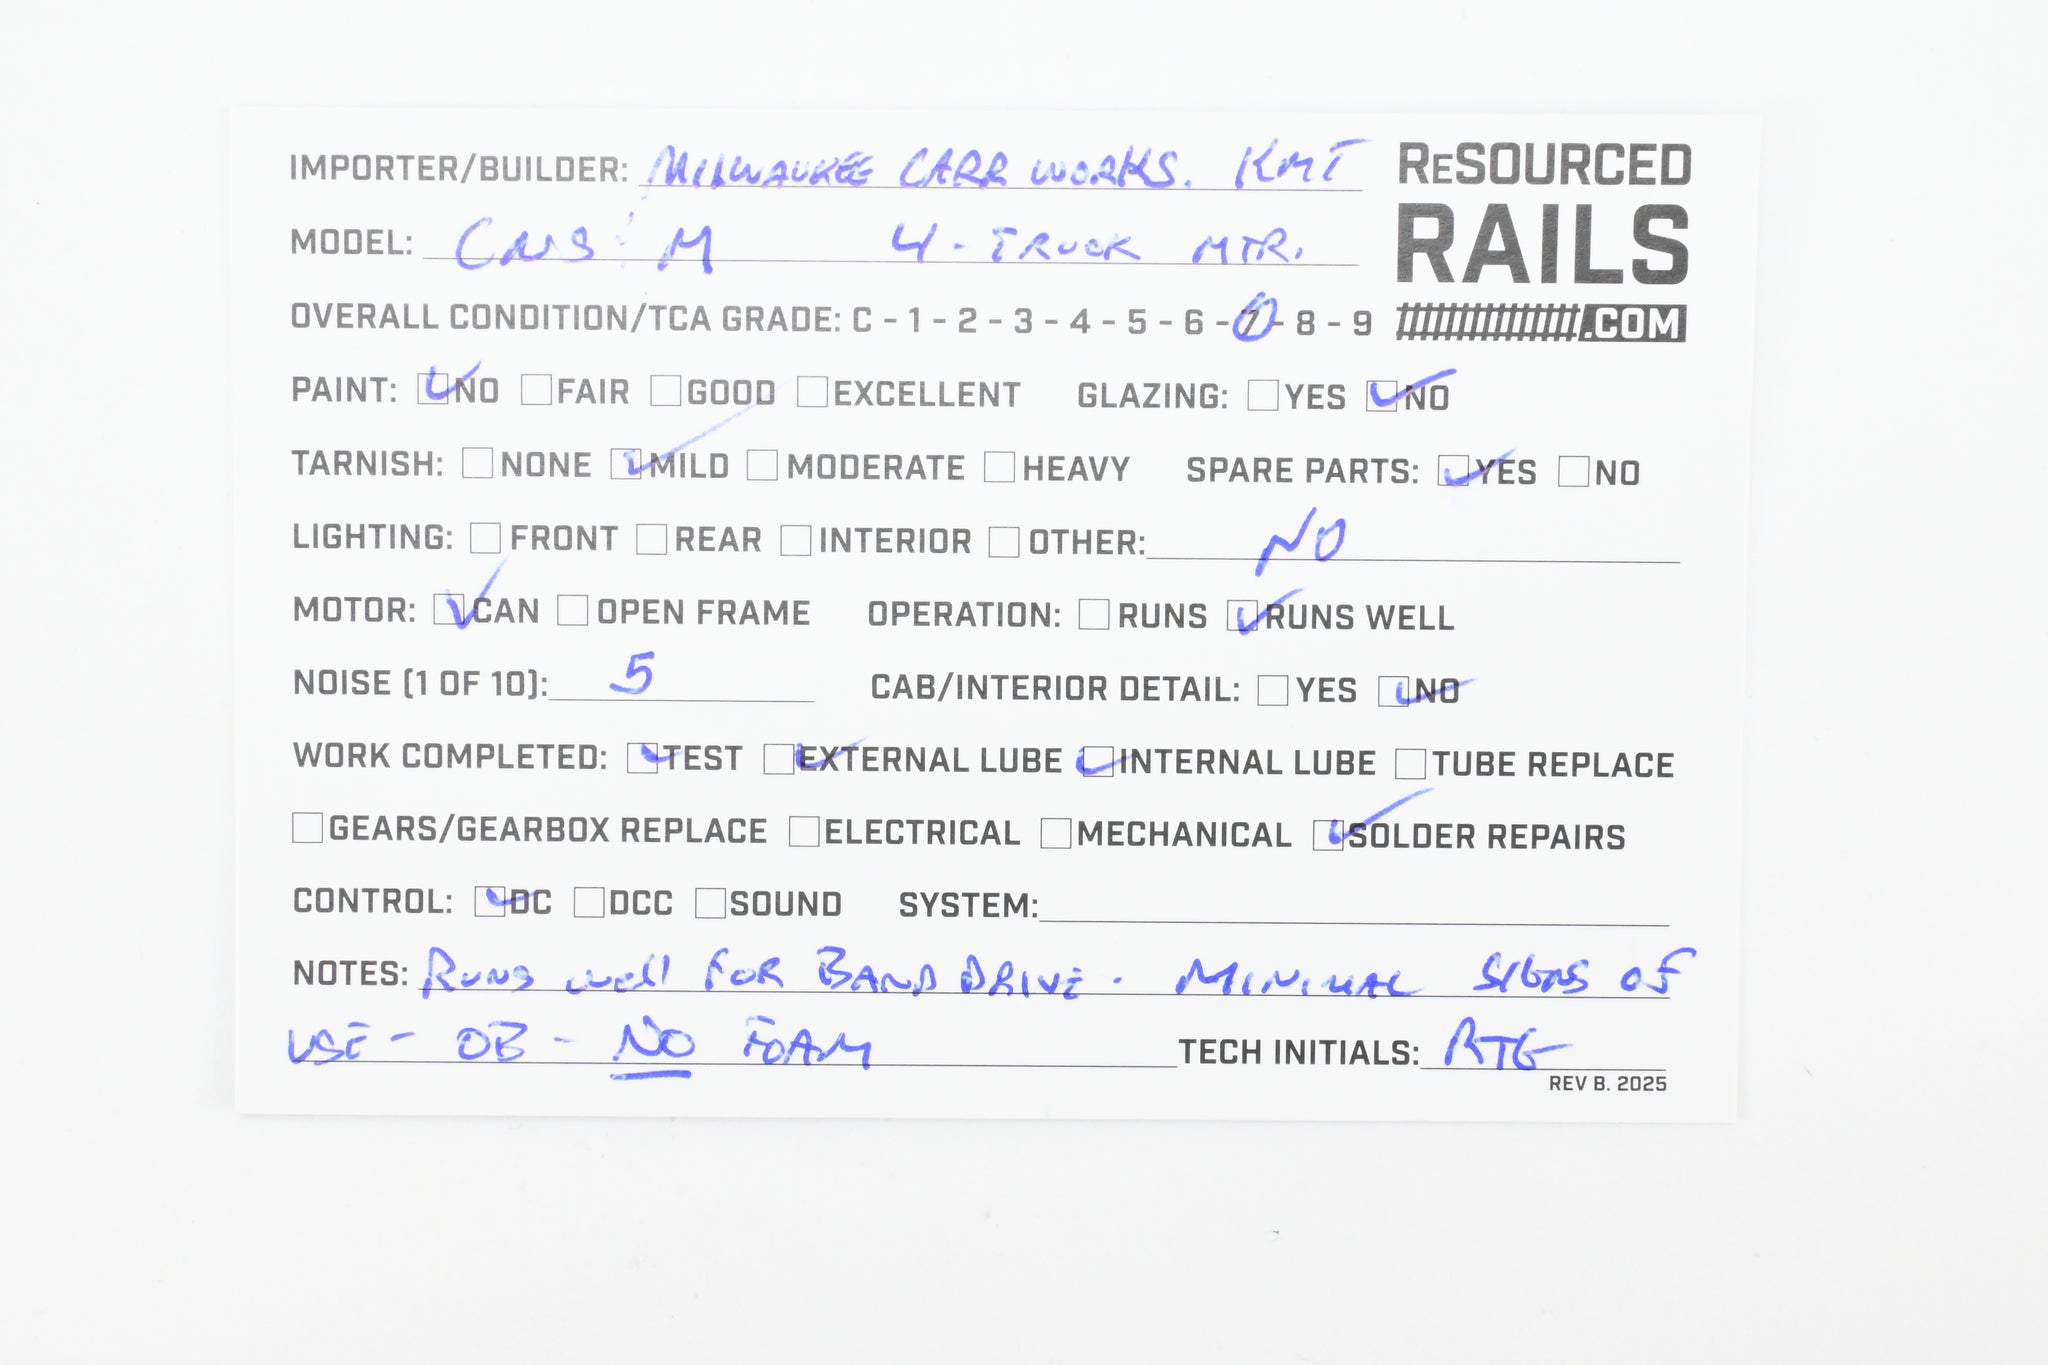 IMPORTER/BUILDER: MILWAUKEE CARR WORKS. KMT
ReSOURCED
RAILS
.COM
MODEL: CNS & M 4-TRUCK MTR.
OVERALL CONDITION/TCA GRADE: C - 1 - 2 - 3 - 4 - 5 - 6 - 7 - 8 - 9
PAINT: NO FAIR GOOD EXCELLENT GLAZING: YES NO
TARNISH: NONE MILD MODERATE HEAVY SPARE PARTS: YES NO
LIGHTING: FRONT REAR INTERIOR OTHER: NO
MOTOR: CAN OPEN FRAME OPERATION: RUNS RUNS WELL
NOISE (1 OF 10): 5 CAB/INTERIOR DETAIL: YES NO
WORK COMPLETED: TEST EXTERNAL LUBE INTERNAL LUBE TUBE REPLACE
GEARS/GEARBOX REPLACE ELECTRICAL MECHANICAL SOLDER REPAIRS
CONTROL: DC DCC SOUND SYSTEM:
NOTES: RUNS WEll FOR BAND DRIVE. MINIMAL SIGNS OF
USE - OB - NO FOAM TECH INITIALS: RTG
REV B. 2025